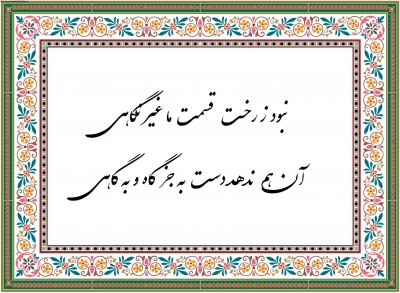 نبود ز رخت قسمت ما غیر نگاهی
آن هم ندهد دست به جز گاه و به گاهی